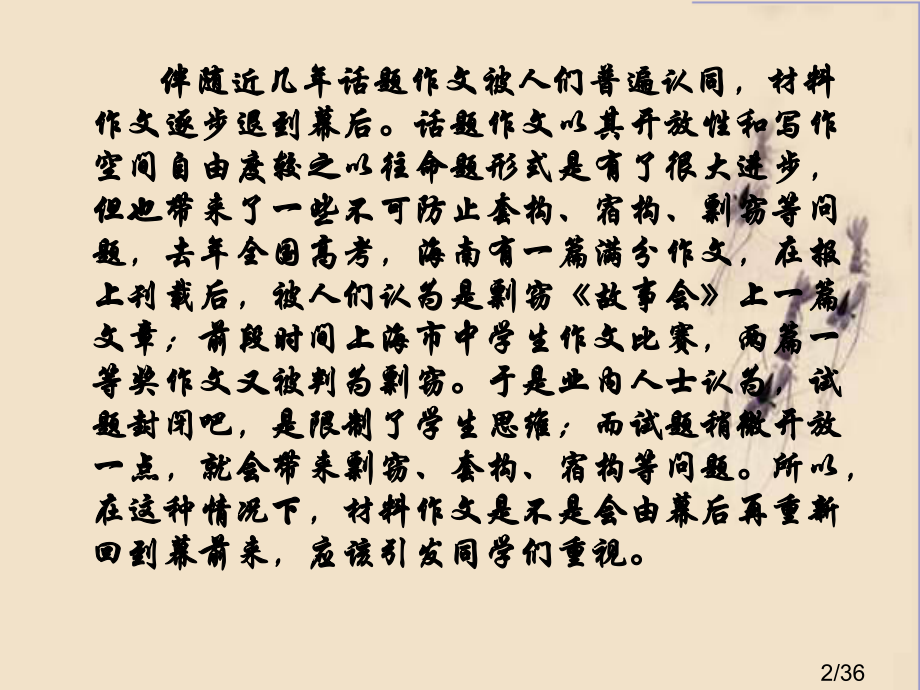 伴随近几年话题作文被人们普遍认同，材料
作文逐步退到幕后。话题作文以其开放性和写作
空间自由度较之以往命题形式是有了很大进步，
但也带来了一些不可防止套构、宿构、剽窃等问
题，去年全国高考，海南有一篇满分作文，在报
上刊载后，被人们认为是剽窃《故事会》上一篇
文章；前段时间上海市中学生作文比赛，两篇一
等奖作文又被判为剽窃。于是业内人士认为，试
题封闭吧，是限制了学生思维；而试题稍微开放
一点，就会带来剽窃、套构、宿构等问题。所以，
在这种情况下，材料作文是不是会由幕后再重新
回到幕前来，应该引发同学们重视。
2/36